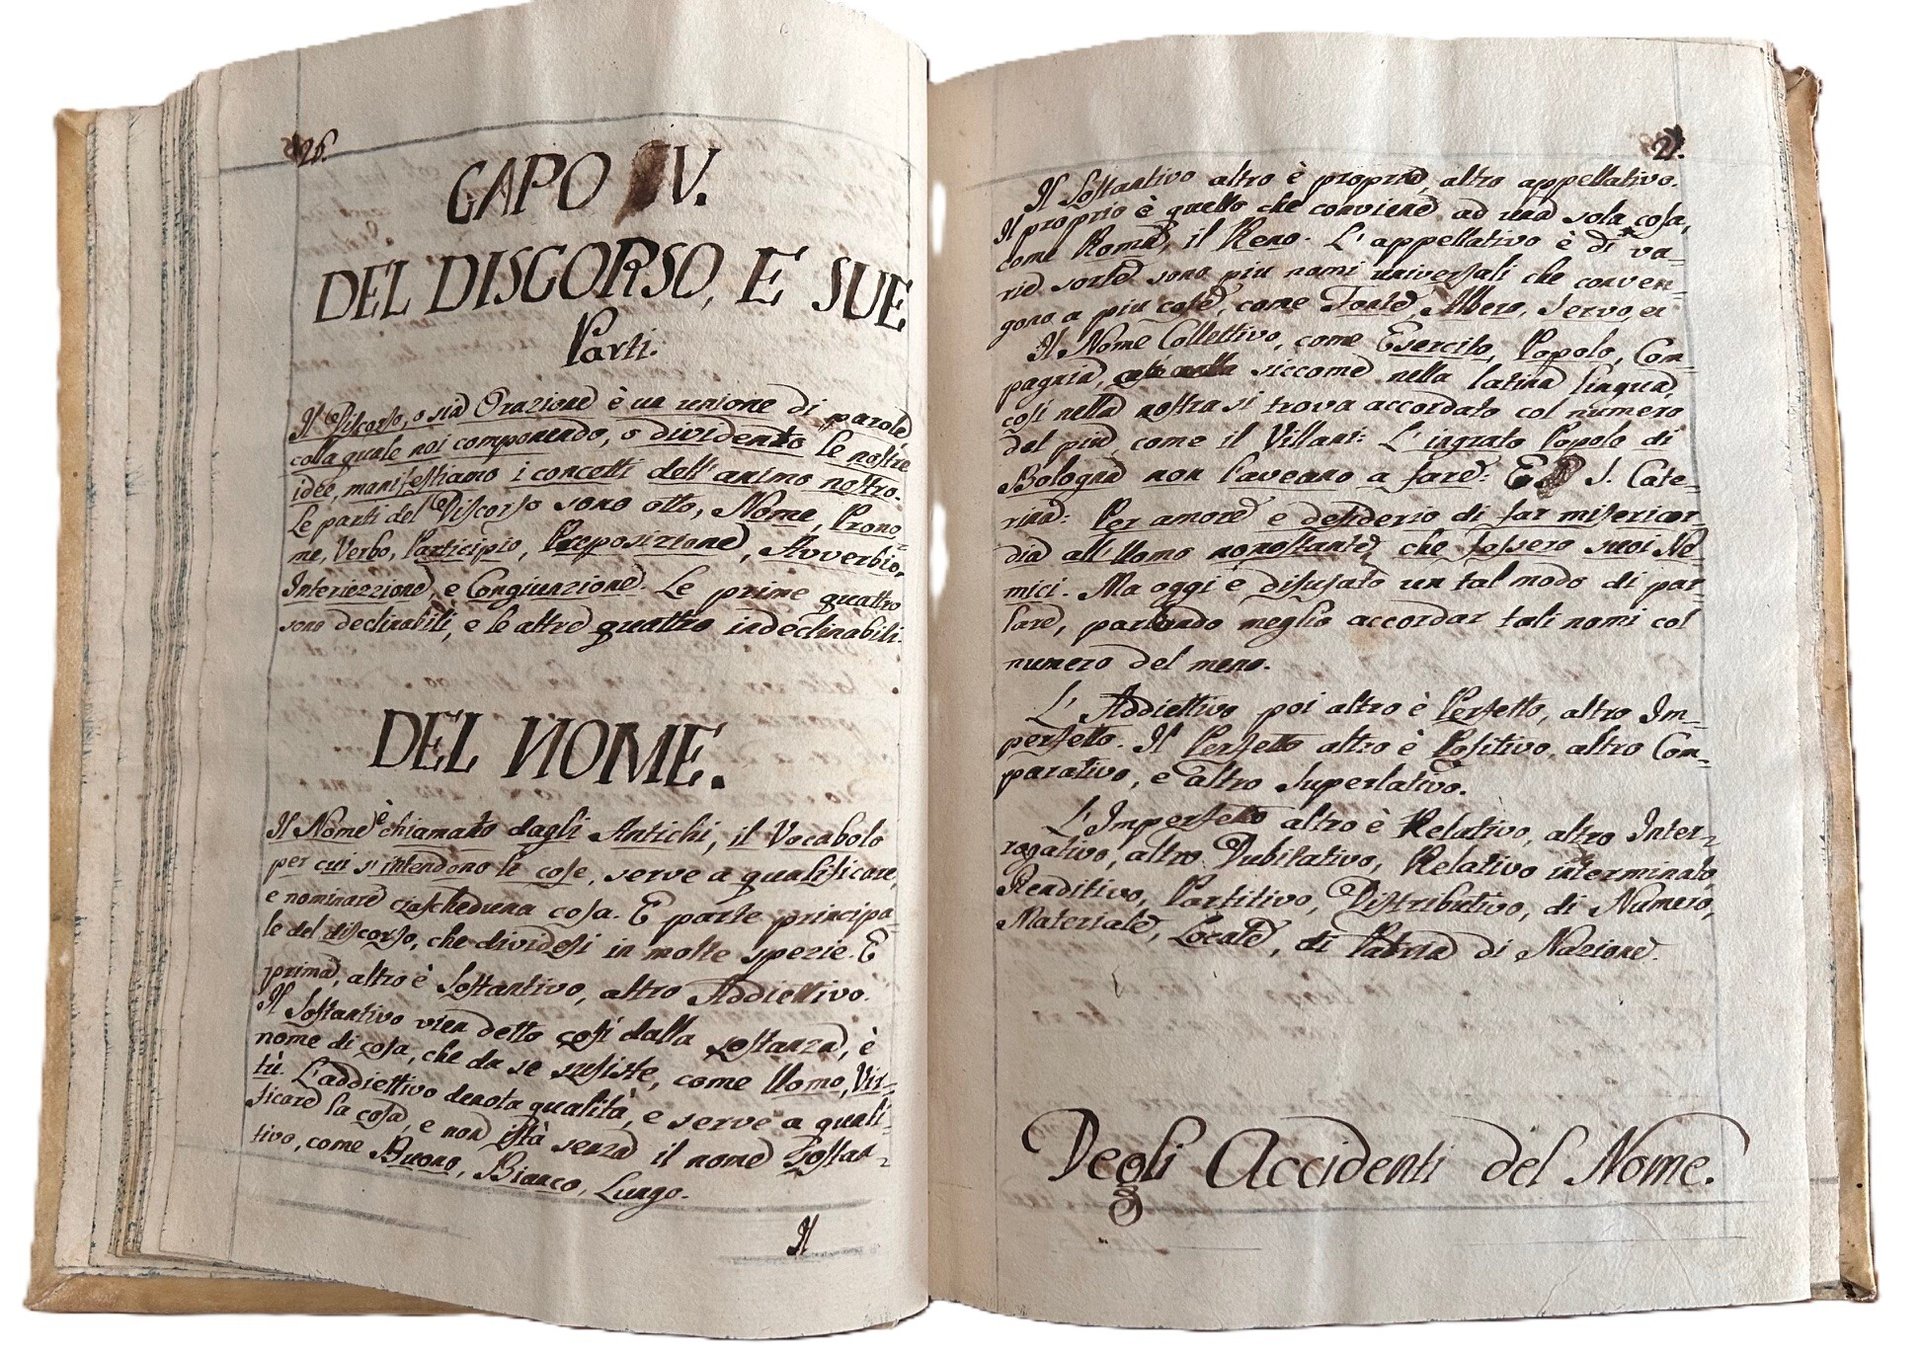 26.
CAPO IV.
DEL DISCORSO, E SUE
Parti.
Il Discorso, o sia Orazione è un unione di parole
colla quale noi componendo, o dividento le nostre
idee, manifestiamo i concetti dell'animo nostro.
Le parti del Discorso sono otto, Nome, Prono-
me, Verbo, Participio, Preposizione, Avverbio,
Interiezzione, e Congiunzione. Le prime quattro
sono declinabili, e le altre quattro indeclinabili.
DEL NOME.
Il Nome è chiamato dagli Antichi, il Vocabolo
per cui s'intendono le cose, serve a qualificare,
e nominare ciascheduna cosa. E parte principa-
le del discorso, che dividesi in molte spezie. E
prima, altro è Sostantivo, altro Addiettivo.
Il Sostantivo vien detto così dalla sostanza, è
nome di cosa, che da se susiste, come Uomo, Vir-
tù. L'addiettivo denota qualità, e serve a quali-
ficare la cosa, e non istà senza il nome Sostan-
tivo, come Buono, Bianco, Lungo.
Il
27.
Il Sostantivo altro è proprio, altro appellativo.
Il proprio è quello che conviene ad una sola cosa,
come Roma, il Reno. L'appellativo è di va-
rie sorte sono piu nomi universali che conven-
gono a piu cose, come Fonte, Albero, Servo, er
Il Nome Collettivo, come Esercito, Popolo, Com-
pagnia, siccome nella latina lingua,
così nella nostra si trova accordato col numero
del più come il Villani: L'ingrato Popolo di
Bologna non l'aveano a fare: E S. Cate-
rina: Per amore e desiderio di far misericor-
dia all'Uomo nonostante che fossero suoi Ne-
mici. Ma oggi e disusato un tal modo di par-
lare, parlando meglio accordar tali nomi col
numero del meno.
L'Addiettivo poi altro è Perfetto, altro Im-
perfetto. Il Perfetto altro è Positivo, altro Com-
parativo, e altro Superlativo.
L'Imperfetto altro è Relativo, altro Inter-
rogativo, altro Dubitativo, Relativo interminato,
Renditivo, Partitivo, Distributivo, di Numero,
Materiale, Locale, di Patria di Nazione.
Degli Accidenti del Nome.